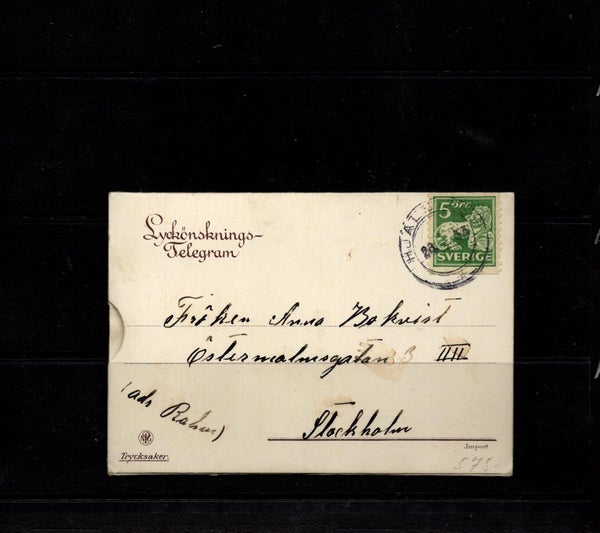 Lyckönsknings-
Telegram
5 ÖRE
SVERIGE
HJÄL
Fröken Anna Bokvist
Östermalmsgatan 3 IIII
(adr
Stockholm
Trycksaker.
Import
575-